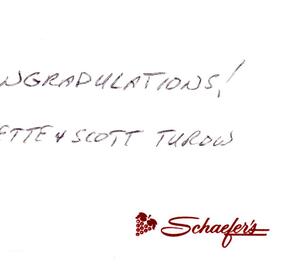 NGRADULATIONS!
ETTE & SCOTT TUROW
Schaefer's